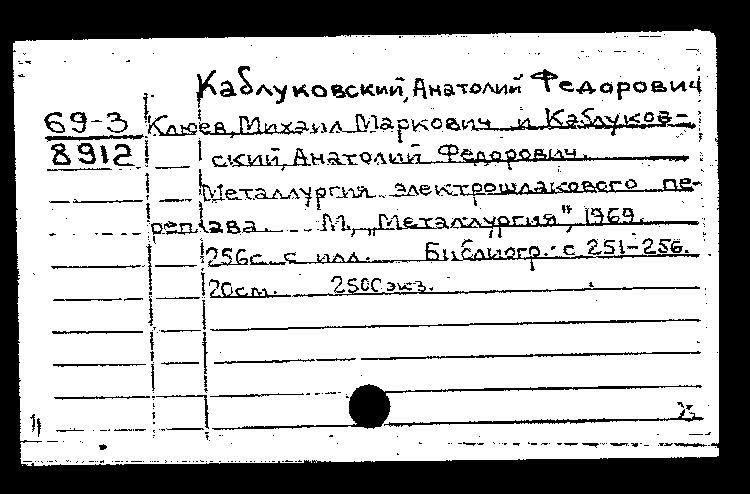 Каблуковский, Анатолий Федорович
69-3 Клюев, Михаил Маркович и Каблуков-
8912 ский, Анатолий Федорович.
Металлургия электрошлакового пе-
реплава. М., „Металлургия", 1969.
256с. с илл. Библиогр.: с 251-256.
20см. 2500экз.